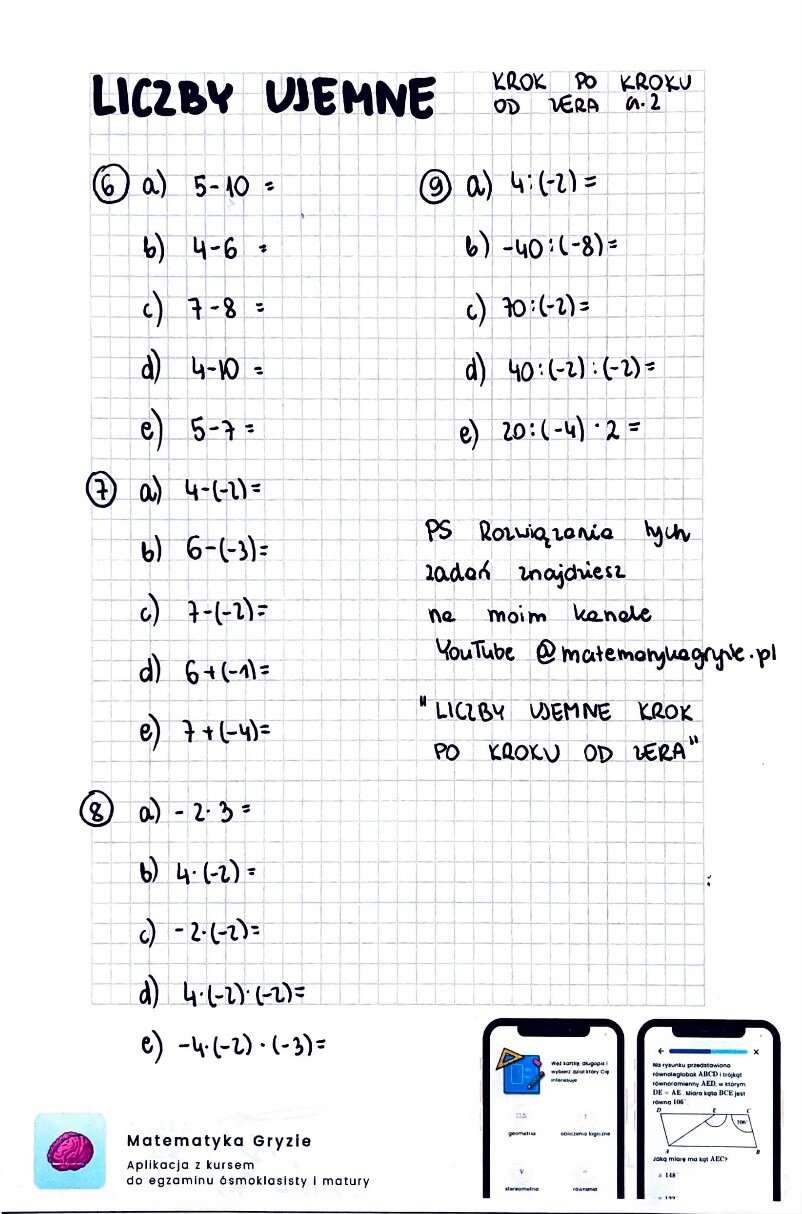 LICZBY UJEMNE
KROK PO KROKU
OD ZERA cz. 2
6 a) 5-10 =
b) 4-6 =
c) 7-8 =
d) 4-10 =
e) 5-7 =
7 a) 4-(-2)=
b) 6-(-3)=
c) 7-(-2)=
d) 6+(-1)=
e) 7+(-4)=
8 a) -2·3 =
b) 4·(-2) =
c) -2·(-2)=
d) 4·(-2)·(-2)=
e) -4·(-2)·(-3)=
9 a) 4:(-2)=
b) -40:(-8)=
c) 70:(-2)=
d) 40:(-2):(-2)=
e) 20:(-4)·2=
PS Rozwiązania tych
zadań znajdziesz
na moim kanale
YouTube @matematykagryzie.pl
"LICZBY UJEMNE KROK
PO KROKU OD ZERA"
Matematyka Gryzie
Aplikacja z kursem
do egzaminu ósmoklasisty i matury
Weź kartkę, długopis i
wybierz dział który Cię
interesuje
geometria
obliczenia logiczne
stereometria
równania
Na rysunku przedstawiono
równoległobok ABCD i trójkąt
równoramienny AED, w którym
DE = AE. Miara kąta BCE jest
równa 106°.
D E C
106°
A B
Jaką miarę ma kąt AEC?
148°